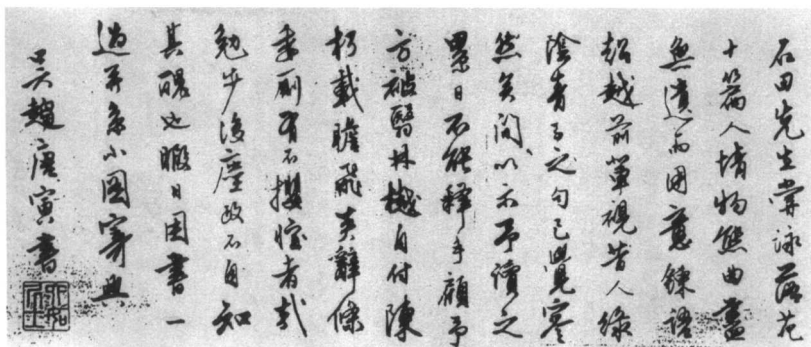 石田先生嘗詠落花
十篇人情物態曲盡
無遺而用意鍊語
超越前輩視昔人綠
陰青子之句已覺寥
然矣間以示予讀之
累日不能釋手顧予
方林樾自付陳
朽載瞻飛英辭條
委廁有不攖懷者哉
勉步後塵政不自知
其醜也暇日因書一
過并系小圖寄興
吳趨唐寅書
六如居士